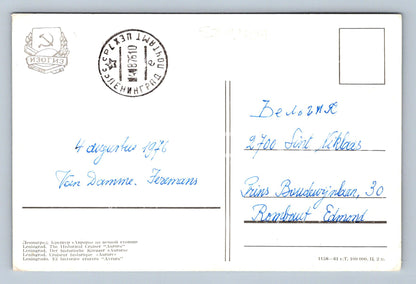 ИЗОГИЗ
СССР ЛЕНИНГРАД ПОЧТАМТ
4 augustus 1976
Van Damme. Jeremans
Белогия
2700 Sint Niklaas
Prins Boudewijnlaan, 30
Rombaut Edmond
Ленинград. Крейсер «Аврора» на вечной стоянке
Leningrad. The Historical Cruiser "Aurora"
Leningrad. Der historische Kreuzer «Aurora»
Leningrad. Croiseur historique «Aurore»
Leningrado. El histórico crucero "Aurora"